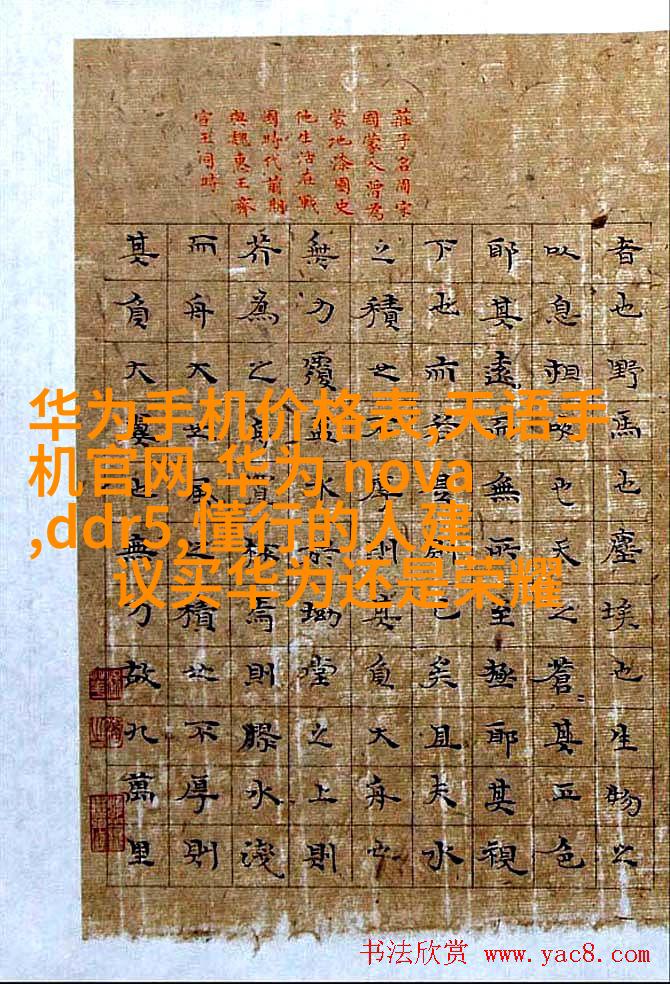 莊子名周宋
國蒙人曾為
蒙地漆園史
他生活在戰
國時代前期
與魏惠王齊
宣王同時
者也野馬也塵埃也生物之
以息相吹也天之蒼〻其正色
耶其遠而無所至極耶其視
下也而若是則已矣且夫水
之積也不厚則其負大舟也
無力覆盃水於坳堂之上則
芥為之舟置杯焉則膠水淺
而舟大也風之積也不厚則
其負大翼也無力故九萬里
华为手机价格表,天语手
机官网,华为 nova
,ddr5,懂行的人建
议买华为还是荣耀
书法欣赏 www.yac8.com